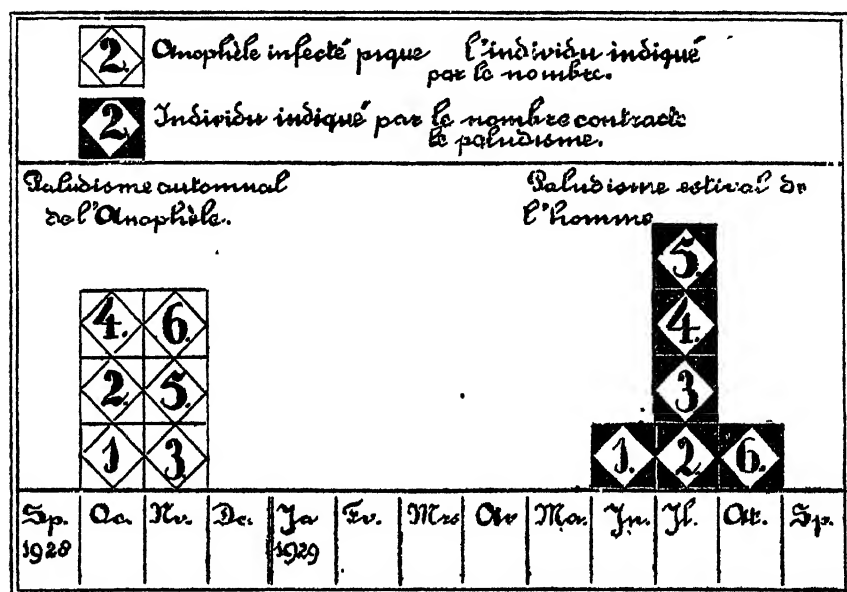 2. Anophèle infecté pique l'individu indiqué
par le nombre.
2. Individu indiqué par le nombre contracte
le paludisme.
Paludisme automnal
de l'Anophèle.
Paludisme estival de
l'homme
5.
4. 6. 4.
2. 5. 3
1 3. 1. 2. 6.
Sp. Oc. Nv. De. Ja Fv. Mrs Av Ma. Jn. Jl. Ot. Sp.
1928 1929